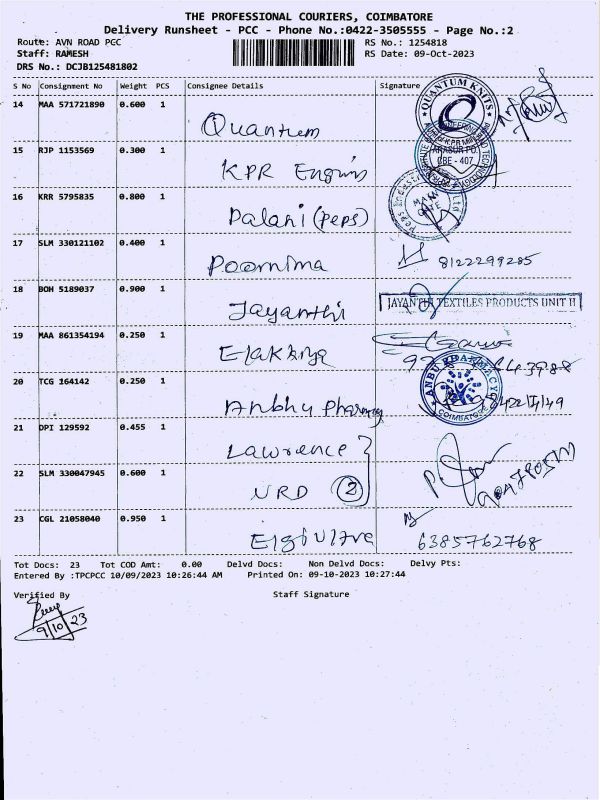 THE PROFESSIONAL COURIERS, COIMBATORE
Delivery Runsheet - PCC - Phone No.:0422-3505555 - Page No.:2
Route: AVN ROAD PCC RS No.: 1254818
Staff: RAMESH RS Date: 09-Oct-2023
DRS No.: DCJB125481802
S No Consignment No Weight PCS Consignee Details Signature
14 MAA 571721890 0.600 1
Quantum
QUANTUM KNITS
15 RJP 1153569 0.300 1
KPR Engins
ARASUR PO.
CBE - 407
16 KRR 5795835 0.800 1
Palani (peps)
17 SLM 330121102 0.400 1
Poornima 8122299285
18 BOH 5189037 0.900 1
Jayanthi
JAYANTHI TEXTILES PRODUCTS UNIT II
19 MAA 861354194 0.250 1
Elakkiya
20 TCG 164142 0.250 1
Anbhu pharmacy
ANBU PHARMACY
COIMBATORE
21 DPI 129592 0.455 1
Lawrence
22 SLM 330047945 0.600 1
URD 2
23 CGL 21058040 0.950 1
Elgi Ultra 6385762768
Tot Docs: 23 Tot COD Amt: 0.00 Delvd Docs: Non Delvd Docs: Delvy Pts:
Entered By :TPCPCC 10/09/2023 10:26:44 AM Printed On: 09-10-2023 10:27:44
Verified By Staff Signature
9/10/23